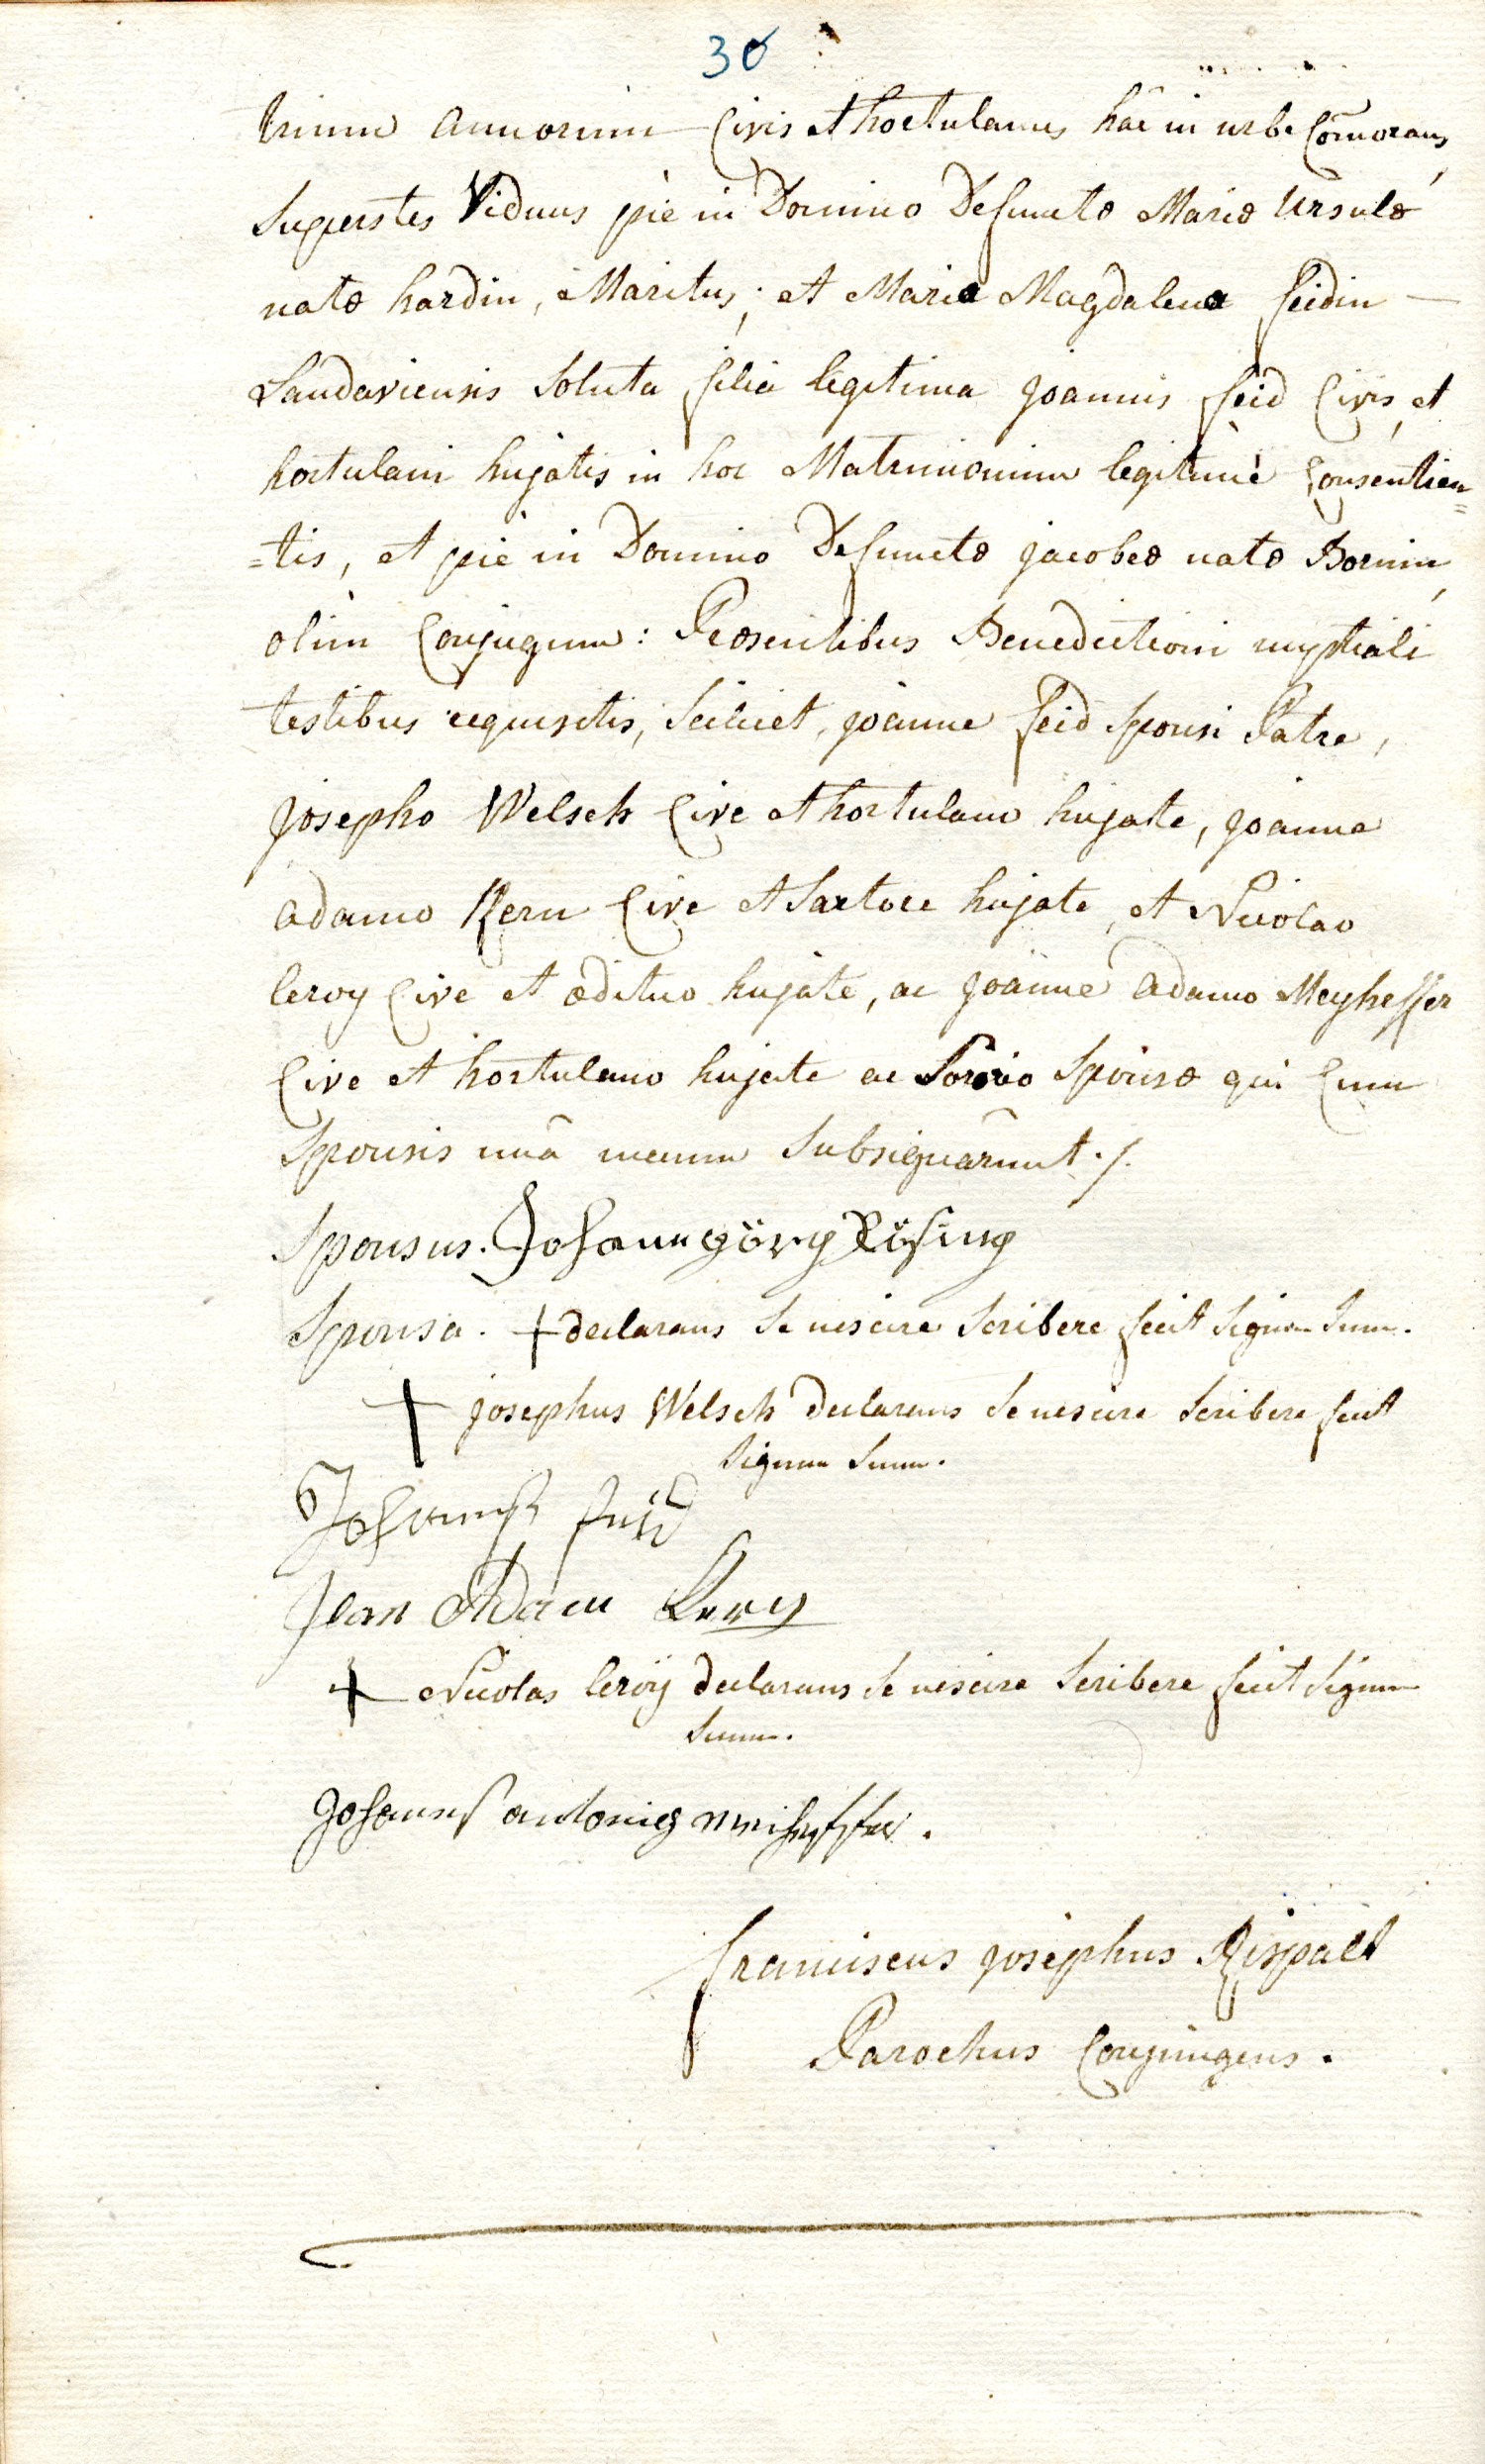 30
trium annorum Civis et hortulanus hâc in urbe Com̃orans,
Superstes Viduus piè in Domino Defunctæ Mariæ Ursulæ
natæ hardin, Maritus; et Maria Magdalena feidin —
Landaviensis Soluta filia legitima joannis feid Civis et
hortulani hujatis in hoc Matrimonium legitimè Consentien=
=tis, et piè in Domino Defunctæ jacobeæ natæ Bornin,
olim Conjugum: Præsentibus Benedictioni nuptiali
testibus requisitis, Scilicet, joanne feid Sponsi Patre,
josepho Welsch Cive et hortulano hujate, joanne
adamo Kern Cive et Sartore hujate, et Nicolao
leroy Cive et ædituo hujate, ac joanne adamo Meyheffer
Cive et hortulano hujate ac Sororio Sponsæ qui Cum
Sponsis unâ mecum Subsignârunt ./.
Sponsus. Johann görg Rösing
Sponsa. + declarans Se nescire Scribere fecit Signum Suum.
+ josephus Welsch declarans Se nescire Scribere fecit
Signum Suum.
Johannes feid
Jean Adam Kern
+ Nicolas leroÿ declarans Se nescire Scribere fecit Signum
Suum.
Johannes antonig meiheffer.
franciscus josephus Rispalt
Parochus Conjungens.